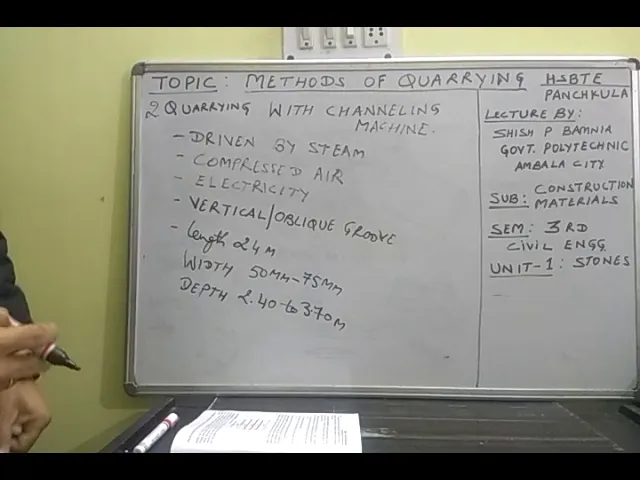 TOPIC: METHODS OF QUARRYING
2 QUARRYING WITH CHANNELING
MACHINE.
- DRIVEN BY STEAM
- COMPRESSED AIR
- ELECTRICITY
- VERTICAL/OBLIQUE GROOVE
- length 24 M
WIDTH 50MM-75MM
DEPTH 2.40 to 3.70 M
HSBTE
PANCHKULA
LECTURE BY:
SHISH P BAMNIA
GOVT. POLYTECHNIC
AMBALA CITY
SUB: CONSTRUCTION
MATERIALS
SEM: 3RD
CIVIL ENGG
UNIT-1: STONES